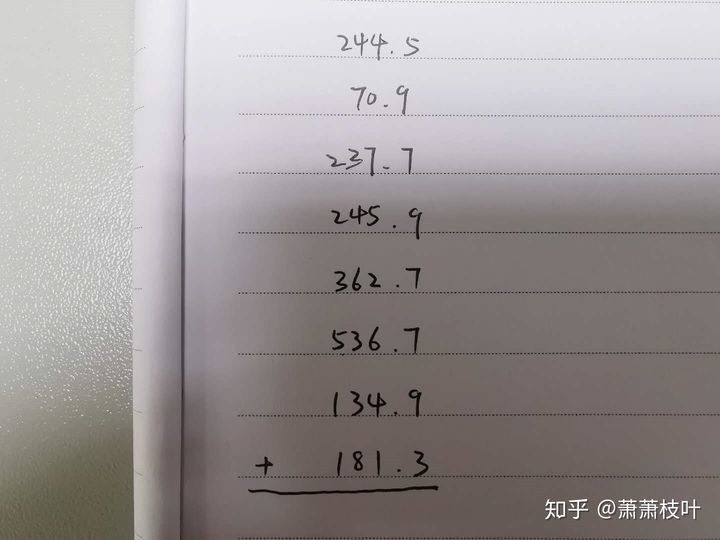 244.5
70.9
237.7
245.9
362.7
536.7
134.9
+ 181.3
知乎 @萧萧枝叶